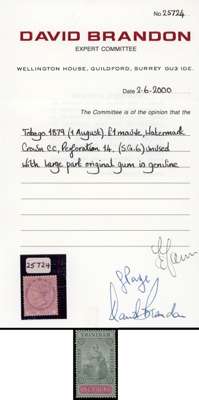 No. 25724
DAVID BRANDON
EXPERT COMMITTEE
WELLINGTON HOUSE, GUILDFORD, SURREY GU3 1DE.
Date 2.6.2000
The Committee is of the opinion that the
Tobago 1879 (1 August) £1 mauve, Watermark
Crown C.C., Perforation 14. (S.G.6) unused
with large part original gum is genuine
25724
David Brandon